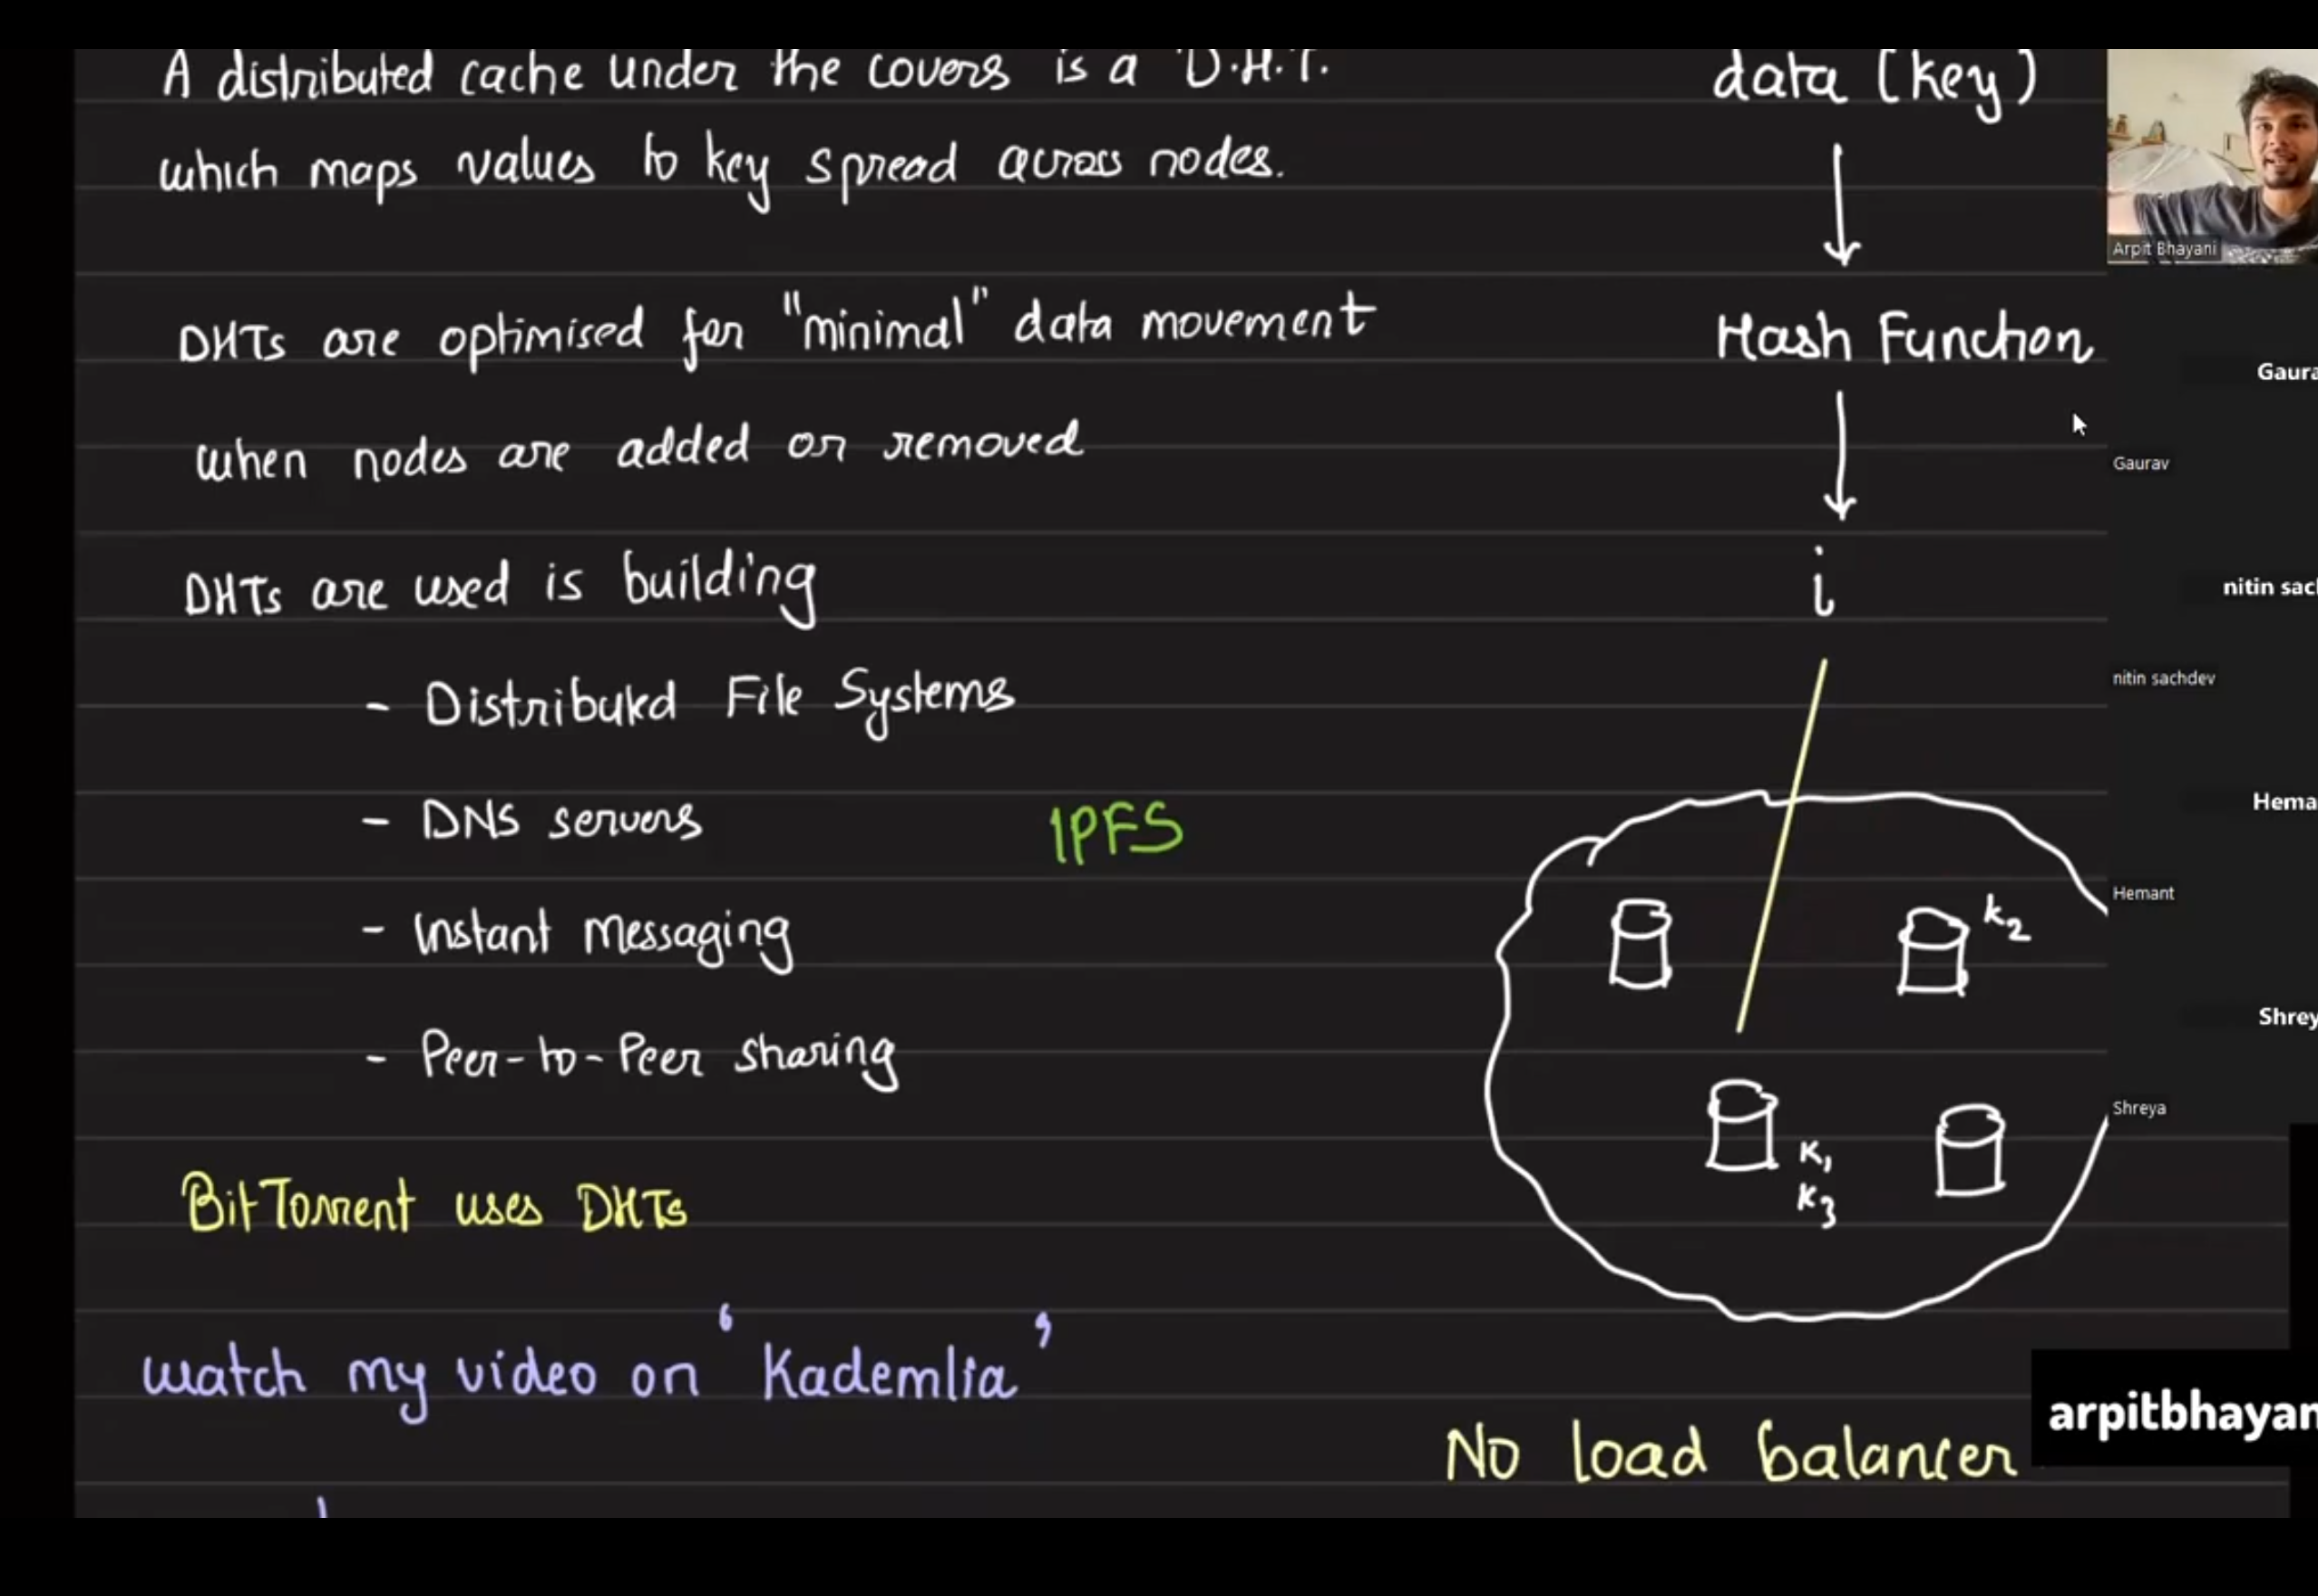 A distributed cache under the covers is a D.H.T.
which maps values to key spread across nodes.
DHTs are optimised for "minimal" data movement
when nodes are added or removed
DHTs are used is building
- Distributed File Systems
- DNS servers
IPFS
- Instant Messaging
- Peer-to-Peer sharing
BitTorrent uses DHTs
watch my video on 'Kademlia'
data (key)
Hash Function
i
k2
K1
K3
No load balancer
Arpit Bhayani
Gaura
Gaurav
nitin sac
nitin sachdev
Hema
Hemant
Shrey
Shreya
arpitbhayan